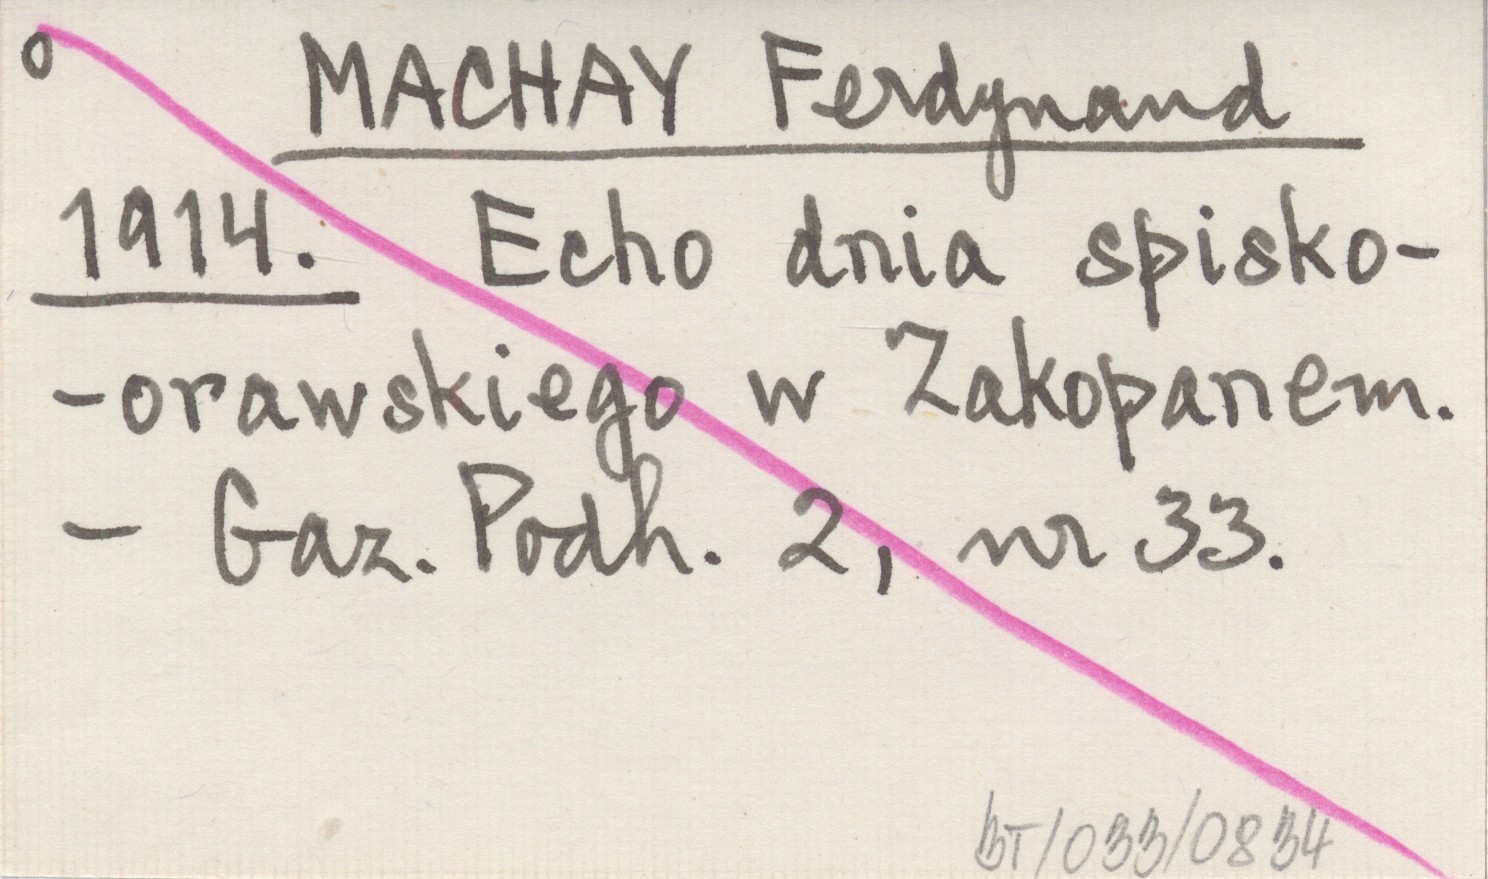 o
MACHAY Ferdynand
1914. Echo dnia spisko-
-orawskiego w Zakopanem.
- Gaz. Podh. 2, nr 33.
BT/033/0834